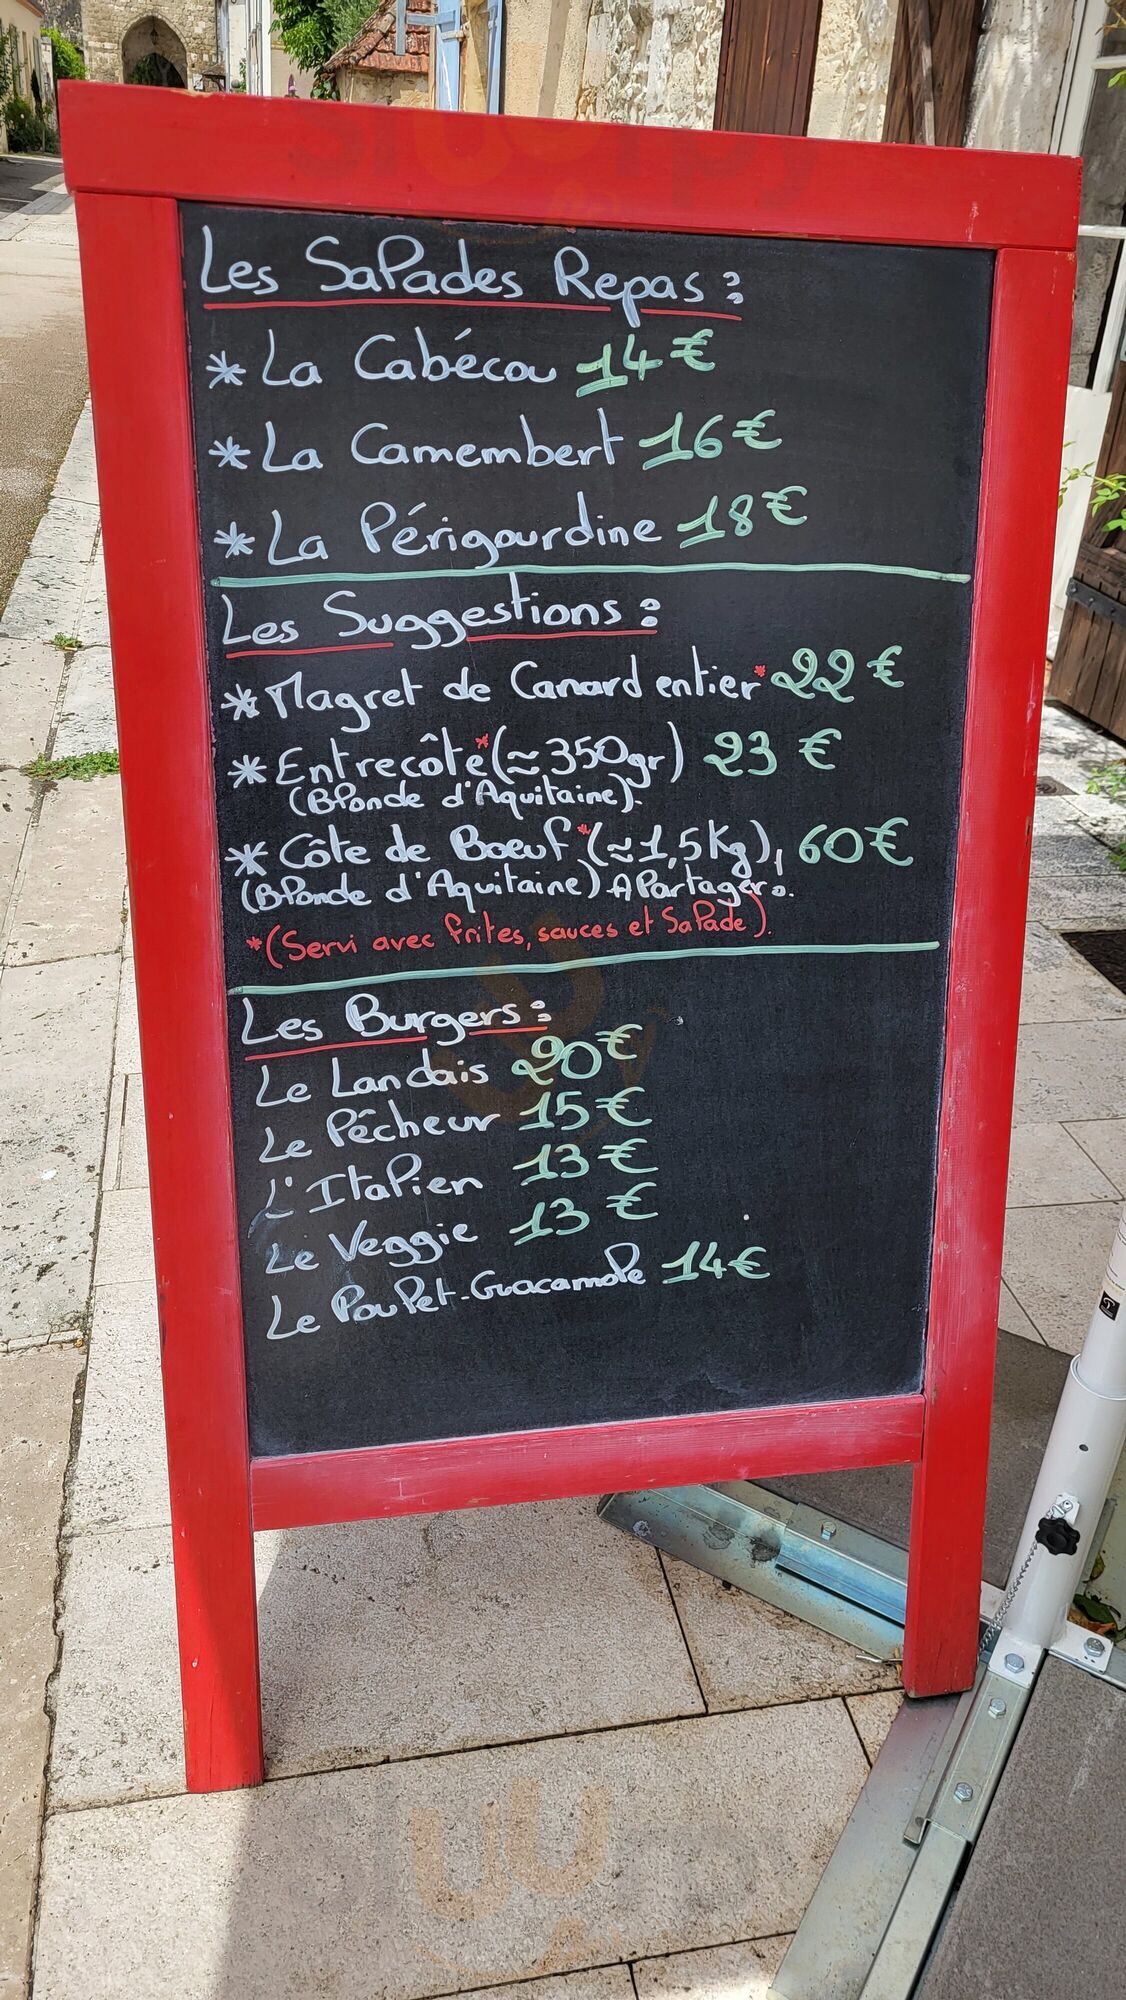 Les Salades Repas :
* La Cabécou 14€
* La Camembert 16€
* La Périgourdine 18€
Les Suggestions :
* Magret de Canard entier* 22€
* Entrecôte* (≈350gr) 23€
(Blonde d'Aquitaine).
* Côte de Boeuf* (≈1,5Kg), 60€
(Blonde d'Aquitaine) A Partager.
*(Servi avec frites, sauces et Salade).
Les Burgers :
Le Landais 20€
Le Pêcheur 15€
L'Italien 13€
Le Veggie 13€
Le Poulet-Guacamole 14€